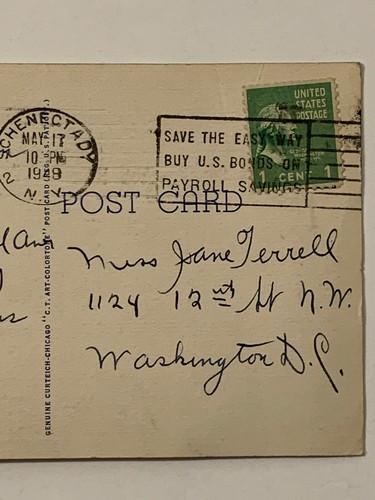 SCHENECTADY
2
MAY 17
10 PM
N.Y.
SAVE THE EASY WAY
BUY U.S. BONDS ON
PAYROLL SAVINGS
UNITED
STATES
POSTAGE
1 CENT 1
POST CARD
Miss Jane Terrell
1124 12th St N.W.
Washington D.C.
GENUINE CURTEICH-CHICAGO "C.T. ART-COLORTONE" POST CARD (REG. U.S. PAT. OFF.)